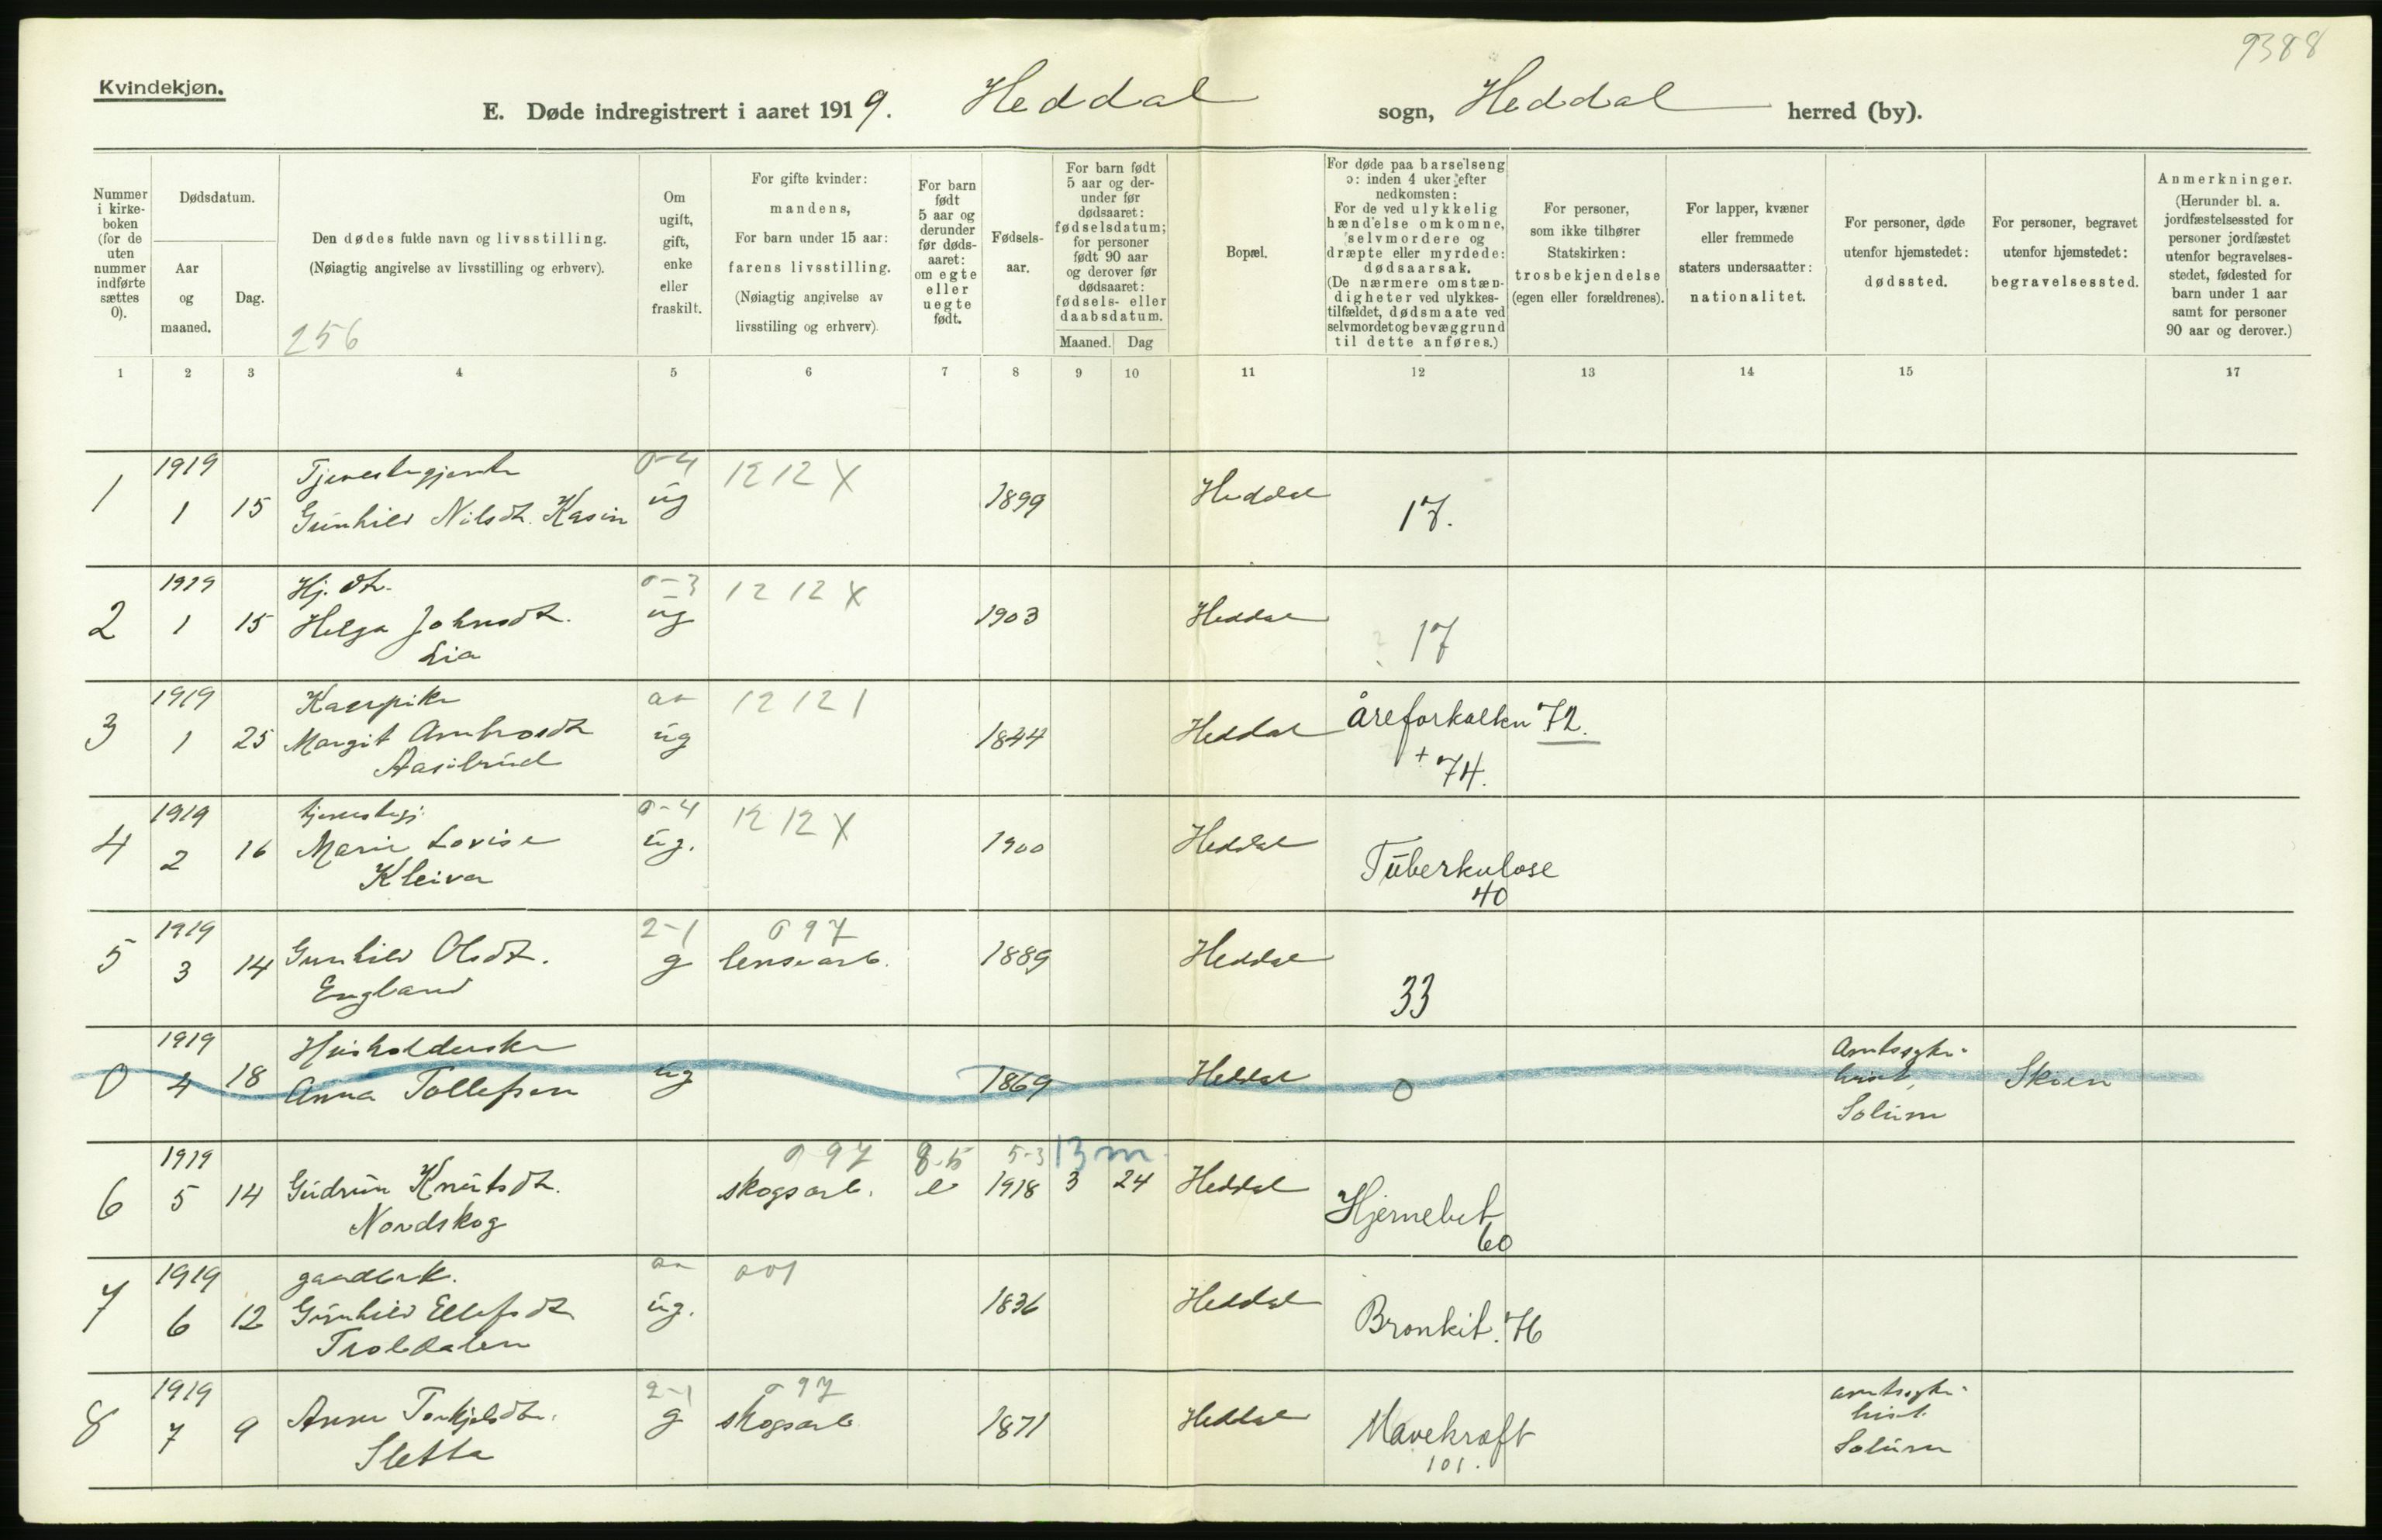 9388
Kvindekjøn.
E. Døde indregistrert i aaret 1919. Heddal sogn, Heddal herred (by).
Nummer
i kirke-
boken
(for de
uten
nummer
indførte
sættes
0).
Dødsdatum.
Aar
og
maaned.
Dag.
Den dødes fulde navn og livsstilling.
(Nøiagtig angivelse av livsstilling og erhverv).
256
Om
ugift,
gift,
enke
eller
fraskilt.
For gifte kvinder:
mandens,
For barn under 15 aar:
farens livsstilling.
(Nøiagtig angivelse av
livsstiling og erhverv).
For barn
født
5 aar og
derunder
før døds-
aaret:
om egte
eller
uegte
født.
Fødsels-
aar.
For barn født
5 aar og der-
under før
dødsaaret:
fødselsdatum;
for personer
født 90 aar
og derover før
dødsaaret:
fødsels- eller
daabsdatum.
Maaned. Dag
Bopæl.
For døde paa barselseng
ɔ: inden 4 uker efter
nedkomsten:
For de ved ulykkelig
hændelse omkomne,
selvmordere og
dræpte eller myrdede:
dødsaarsak.
(De nærmere omstæn-
digheter ved ulykkes-
tilfældet, dødsmaate ved
selvmordet og bevæggrund
til dette anføres.)
For personer,
som ikke tilhører
Statskirken:
trosbekjendelse
(egen eller forældrenes).
For lapper, kvæner
eller fremmede
staters undersaatter:
nationalitet.
For personer, døde
utenfor hjemstedet:
dødssted.
For personer, begravet
utenfor hjemstedet:
begravelsessted.
Anmerkninger.
(Herunder bl. a.
jordfæstelsessted for
personer jordfæstet
utenfor begravelses-
stedet, fødested for
barn under 1 aar
samt for personer
90 aar og derover.)
1 2 3 4 5 6 7 8 9 10 11 12 13 14 15 17
1919 Tjenestegjente 0-4 12 12 X
1 1 15 Gunhild Nilsdt. Kasin ug 1899 Heddal 17.
1919 Hj. dt. 0-3 12 12 X
2 1 15 Helga Johnsdt. ug 1903 Heddal 17
Lia
1919 12 12 1
3 1 25 Margit ug 1844 Heddal åreforkalkn 72.
+ 74.
1919 0-4 12 12 X
4 2 16 Marie Lovise ug. 1900 Heddal Tuberkulose
Kleiva 40
1919 2-1 097
5 3 14 Gunhild Olsdt. g lensearb. 1889 Heddal
England 33
1919 Husholderske Amtssyke-
0 4 18 Anna Tollefsen ug 1869 Heddal 0 hust, Skien
Solum
1919 097 8-5 5-3 13 m.
6 5 14 Gudrun Knutsdt. skogsarb. e 1918 3 24 Heddal Hjernebet
Nordskog 60
1919 001
7 6 12 Gunhild Ellefsdt ug. 1836 Heddal Bronkit. 76
Troldalen
1919 2-1 097 amtssyke-
8 7 9 Anne Torkjelsdtr. g skogsarb 1871 Heddal Mavekræft hust.
Sletta 101. Solum